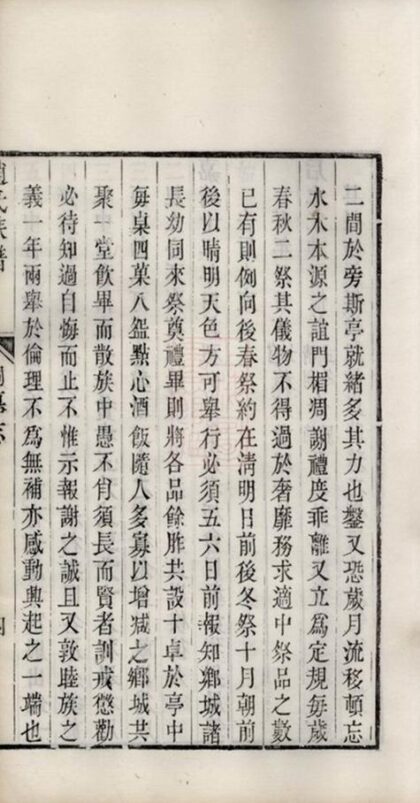 二間於旁斯亭就緒多其力也鏊又恐歲月流移頓忘
水木本源之誼門楣凋謝禮度乖離又立為定規每歲
春秋二祭其儀物不得過於奢靡務求適中祭品之數
已有則例向後春祭約在淸明日前後冬祭十月朝前
後以晴明天色方可舉行必須五六日前報知鄉城諸
長幼同來祭奠禮畢則將各品餘胙共設十卓於亭中
每桌四菓八盌點心酒飯隨人多寡以增减之鄉城共
聚一堂飲畢而散族中愚不肖須長而賢者訓戒懲勸
必待知過自悔而止不惟示報謝之誠且又敦睦族之
義一年兩舉於倫理不為無補亦感動興起之一端也
氏族譜